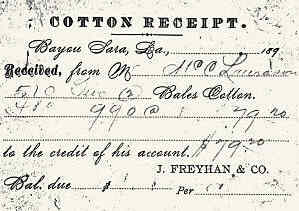 COTTON RECEIPT.
Bayou Sara, La., 189
Received, from M
Bales Cotton.
990 @ 79.20
to the credit of his account. $79.20
J. FREYHAN & CO.
Bal. due $ Per